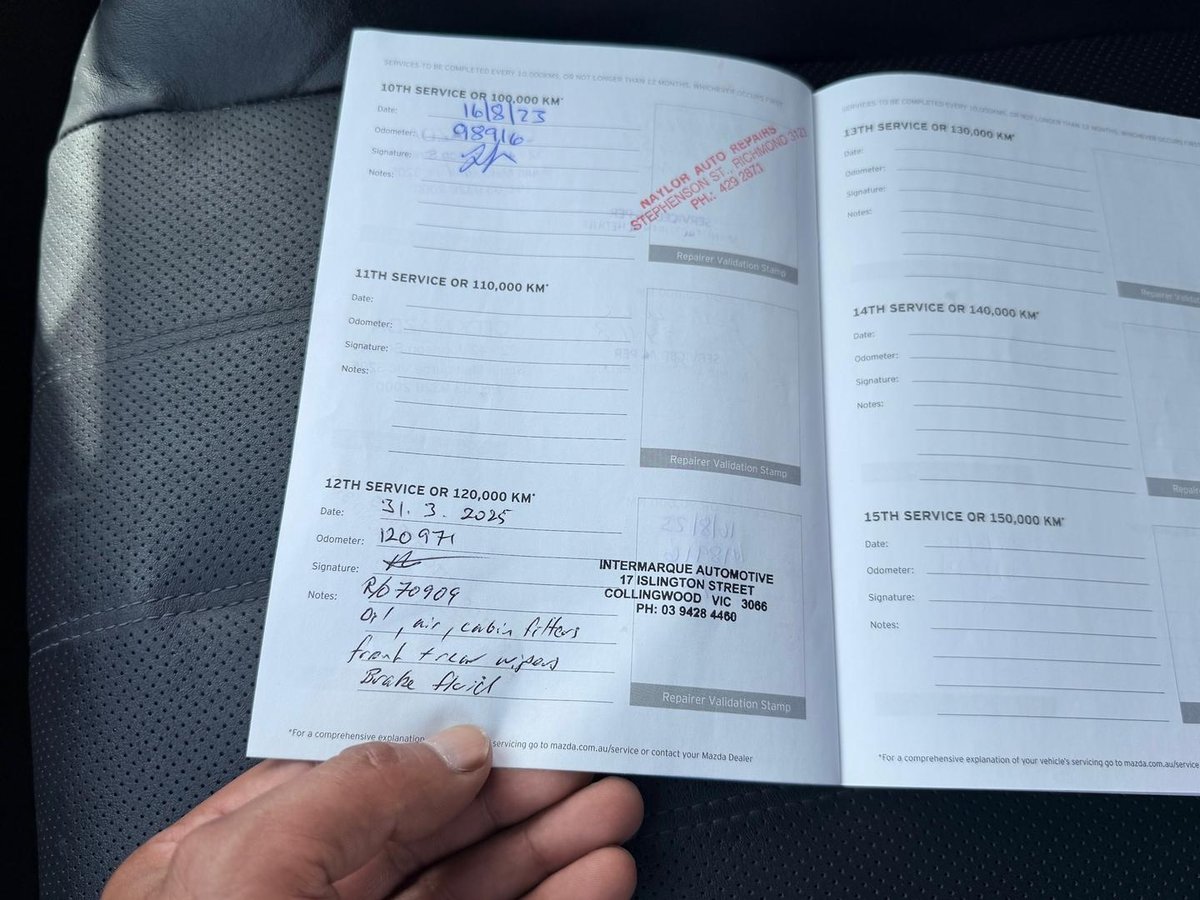 SERVICES TO BE COMPLETED EVERY 10,000KMS, OR NOT LONGER THAN 12 MONTHS, WHICHEVER OCCURS FIRST
10TH SERVICE OR 100,000 KM*
Date: 16/8/23
Odometer: 98916
Signature:
Notes:
NAYLOR AUTO REPAIRS
STEPHENSON ST., RICHMOND 3121
PH.: 429 2871
Repairer Validation Stamp
11TH SERVICE OR 110,000 KM*
Date:
Odometer:
Signature:
Notes:
Repairer Validation Stamp
12TH SERVICE OR 120,000 KM*
Date: 31. 3. 2025
Odometer: 120971
Signature:
Notes: R/O 70909
Oil, air, cabin filters
front + rear wipers
Brake fluid
INTERMARQUE AUTOMOTIVE
17 ISLINGTON STREET
COLLINGWOOD VIC 3066
PH: 03 9428 4460
Repairer Validation Stamp
*For a comprehensive explanation servicing go to mazda.com.au/service or contact your Mazda Dealer
SERVICES TO BE COMPLETED EVERY 10,000KMS, OR NOT LONGER THAN 12 MONTHS, WHICHEVER OCCURS FIRST
13TH SERVICE OR 130,000 KM*
Date:
Odometer:
Signature:
Notes:
Repairer Valida
14TH SERVICE OR 140,000 KM*
Date:
Odometer:
Signature:
Notes:
Repair
15TH SERVICE OR 150,000 KM*
Date:
Odometer:
Signature:
Notes:
*For a comprehensive explanation of your vehicle's servicing go to mazda.com.au/service